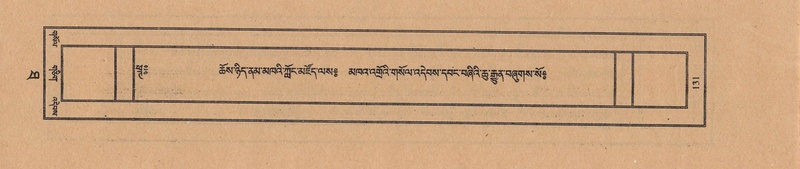 ཆོས་ཉིད་ནམ་མཁའི་ཀློང་མཛོད་ལས༔ མཁའ་འགྲོའི་གསོལ་འདེབས་དབང་བཞིའི་ཆུ་རྒྱུན་བཞུགས་སོ༔
131